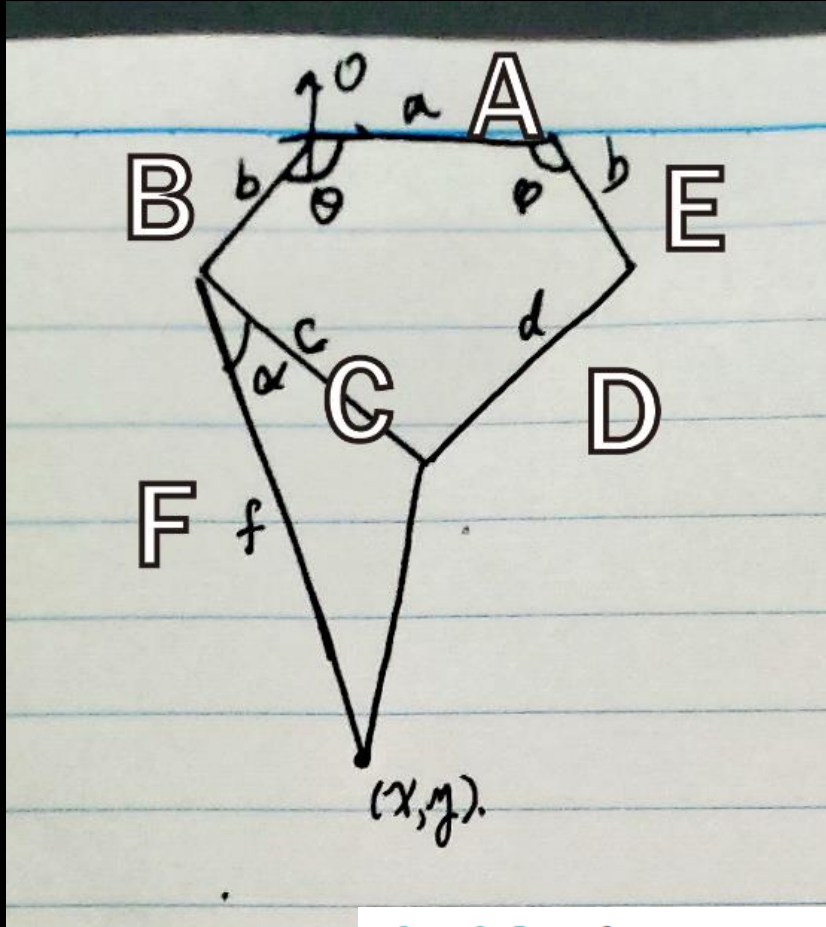 O
a
A
B
b
θ
φ
b
E
d
c
α
C
D
F
f
(x,y).